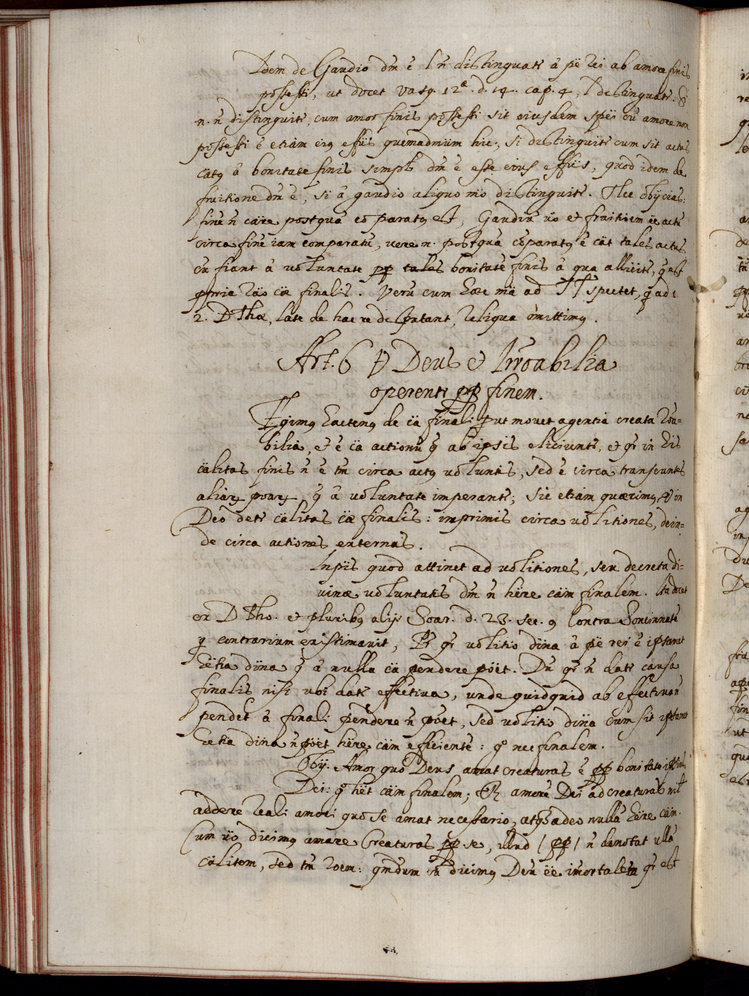 Idem de Gaudio dm̃ ẽ si ñ distinguatr à pẽ rei ab amore finis
possessi, ut docet Vasq. 12ª. d. 14. cap. 4, si distinguatr.
n. ñ distinguitr, cum amor finis possessi sit eiusdem spẽi cũ amore non
possessi ẽ etiam eiq effũs quemadmdum hic, si distinguitr cum sit actus
catq à bonitate finis simplr dm̃ ẽ esse eius effũs, quod idem de
fruitione dm̃ ẽ, si à gaudio aliquo mõ distinguitr. Nec obijcias:
finẽ ñ cãre postquã ẽe paratq est, Gaudiũ ũo et fruitioñem ẽe actũ
circa finẽ iam comparatũ, vere n. postquã cõparatq ẽ cãt tales actus
cũ fiant à voluntate pp tales bonitatẽ finis à qua allicitr, q̃ est
ppria rão cãe finalis. Verũ cum hæc mã ad TT spectet, q̃ ad 1
2. D Tho, late de hac re disputant, reliqua omittimq.
Art. 6 Deus et Irrõabilia
operentr pp finem.
Egimq hactenq de cã finali put mouet agentia creata rõa-
bilia, et ẽ cã actionũ q̃ ab ipsis eliciuntr, et qr in his
cãlitas finis ñ ẽ tm̃ circa actq voluntis, sed ẽ circa transeuntes
aliarq poarq, q̃ à voluntate imperantr; sic etiam quærimq, in
Deo detr cãlitas cãe finalis: imprimis circa volitiones, dein-
de circa actiones externas.
Inpis quod attinet ad volitiones, seu decreta di-
uinæ voluntatis dm̃ ñ hẽre cãm finalem. Ita docet
ex D Tho. et pluribq alijs Soar. d. 23. sec. 9 contra Soncinnatẽ
q contrarium existimauit, Pr qr volitio diña à pẽ rei ẽ ipsamet
ẽẽtia diña q̃ à nulla cã pendere põet. Dñ qr ñ datr causa
finalis nisi ubi datr effectiua, unde quidquid ab effectiua ñ
pendet à finali pendere ñ põet, sed volitio diña cum sit ipsamet
ẽẽtia diña ñ põet hẽre cãm efficientẽ: gº nec finalem.
Obij. Amor quo Deus amat creaturas ẽ pp bonitatẽ ipsius
Dei: gº hẽt cãm finalem; Rr amorẽ Dei ad creaturas nil
addere reali amori quo se amat necessario, atq adeo nullã hẽre cãm.
Cum ũo dicimq amare Creaturas pp se, illud (pp) ñ denotat ullã
cãlitem, sed tm̃ rõem: qm̃dum ñ dicimq Deũ ẽe imortalem qr est